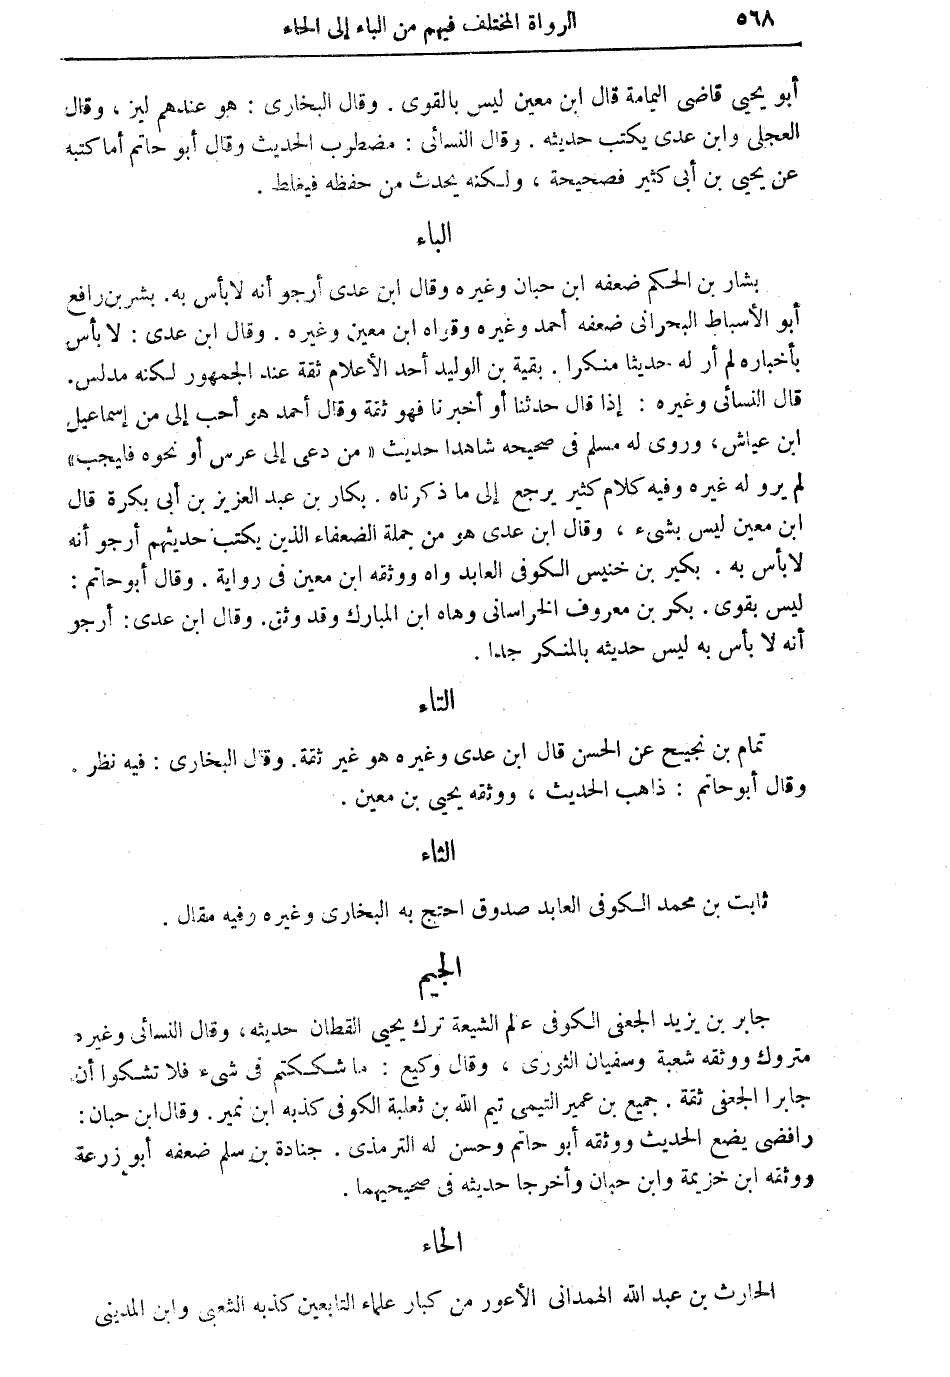 ٥٦٨ الرواة المختلف فيهم من الباء إلى الحاء
أبو يحيى قاضى اليمامة قال ابن معين ليس بالقوى . وقال البخارى : هو عندهم لين ، وقال
العجلى وابن عدى يكتب حديثه . وقال النسائى : مضطرب الحديث وقال أبو حاتم أما كتبه
عن يحيى بن أبى كثير فصحيحة ، ولكنه يحدث من حفظه فيغلط .
الباء
بشار بن الحكم ضعفه ابن حبان وغيره وقال ابن عدى أرجو أنه لابأس به. بشر بن رافع
أبو الأسباط البحرانى ضعفه أحمد وغيره وقواه ابن معين وغيره . وقال ابن عدى : لا بأس
بأخباره لم أر له حديثا منكرا . بقية بن الوليد أحد الأعلام ثقة عند الجمهور لكنه مدلس.
قال النسائى وغيره : إذا قال حدثنا أو أخبرنا فهو ثقة وقال أحمد هو أحب إلى من إسماعيل
ابن عياش، وروى له مسلم فى صحيحه شاهدا حديث « من دعى إلى عرس أو نحوه فليجب»
لم يرو له غيره وفيه كلام كثير يرجع إلى ما ذكرناه . بكار بن عبد العزيز بن أبى بكرة قال
ابن معين ليس بشىء ، وقال ابن عدى هو من جملة الضعفاء الذين يكتب حديثهم أرجو أنه
لابأس به . بكير بن خنيس الكوفى العابد واه ووثقه ابن معين فى رواية . وقال أبوحاتم :
ليس بقوى . بكر بن معروف الخراسانى وهاه ابن المبارك وقد وثق. وقال ابن عدى: أرجو
أنه لا بأس به ليس حديثه بالمنكر جدا .
التاء
تمام بن نجيح عن الحسن قال ابن عدى وغيره هو غير ثقة. وقال البخارى : فيه نظر .
وقال أبوحاتم : ذاهب الحديث ، ووثقه يحيى بن معين .
الثاء
ثابت بن محمد الكوفى العابد صدوق احتج به البخارى وغيره وفيه مقال .
الجيم
جابر بن يزيد الجعفى الكوفى عالم الشيعة ترك يحيى القطان حديثه، وقال النسائى وغيره
متروك ووثقه شعبة وسفيان الثورى ، وقال وكيع : ما شككتم فى شىء فلا تشكوا أن
جابرا الجعفى ثقة . جميع بن عمير التيمى تيم الله بن ثعلبة الكوفى كذبه ابن نمير . وقال ابن حبان :
رافضى يضع الحديث ووثقه أبو حاتم وحسن له الترمذى . جنادة بن سلم ضعفه أبو زرعة
ووثقه ابن خزيمة وابن حبان وأخرجا حديثه فى صحيحيهما .
الحاء
الحارث بن عبد الله الهمدانى الأعور من كبار علماء التابعين كذبه الشعبى وابن المدينى